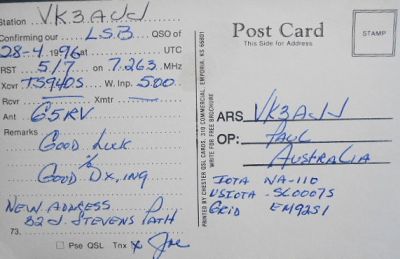 Station VK3AJJ
Confirming our LSB QSO of
28-4 1996 at UTC
RST 5/7 on 7.263 MHz
Xcvr TS940S W. Inp. 500
Rcvr Xmtr
Ant G5RV
Remarks
Good Luck
Good Dx,ing
New Address
82 J. Stevens Path
73.
Pse QSL Tnx x Joe
PRINTED BY CHESTER QSL CARDS, 310 COMMERCIAL, EMPORIA, KS 66801
WRITE FOR FREE BROCHURE
Post Card
This Side for Address
STAMP
ARS VK3AJJ
OP: Paul
Australia
IOTA NA-110
USIOTA - SC007S
Grid EM92SI